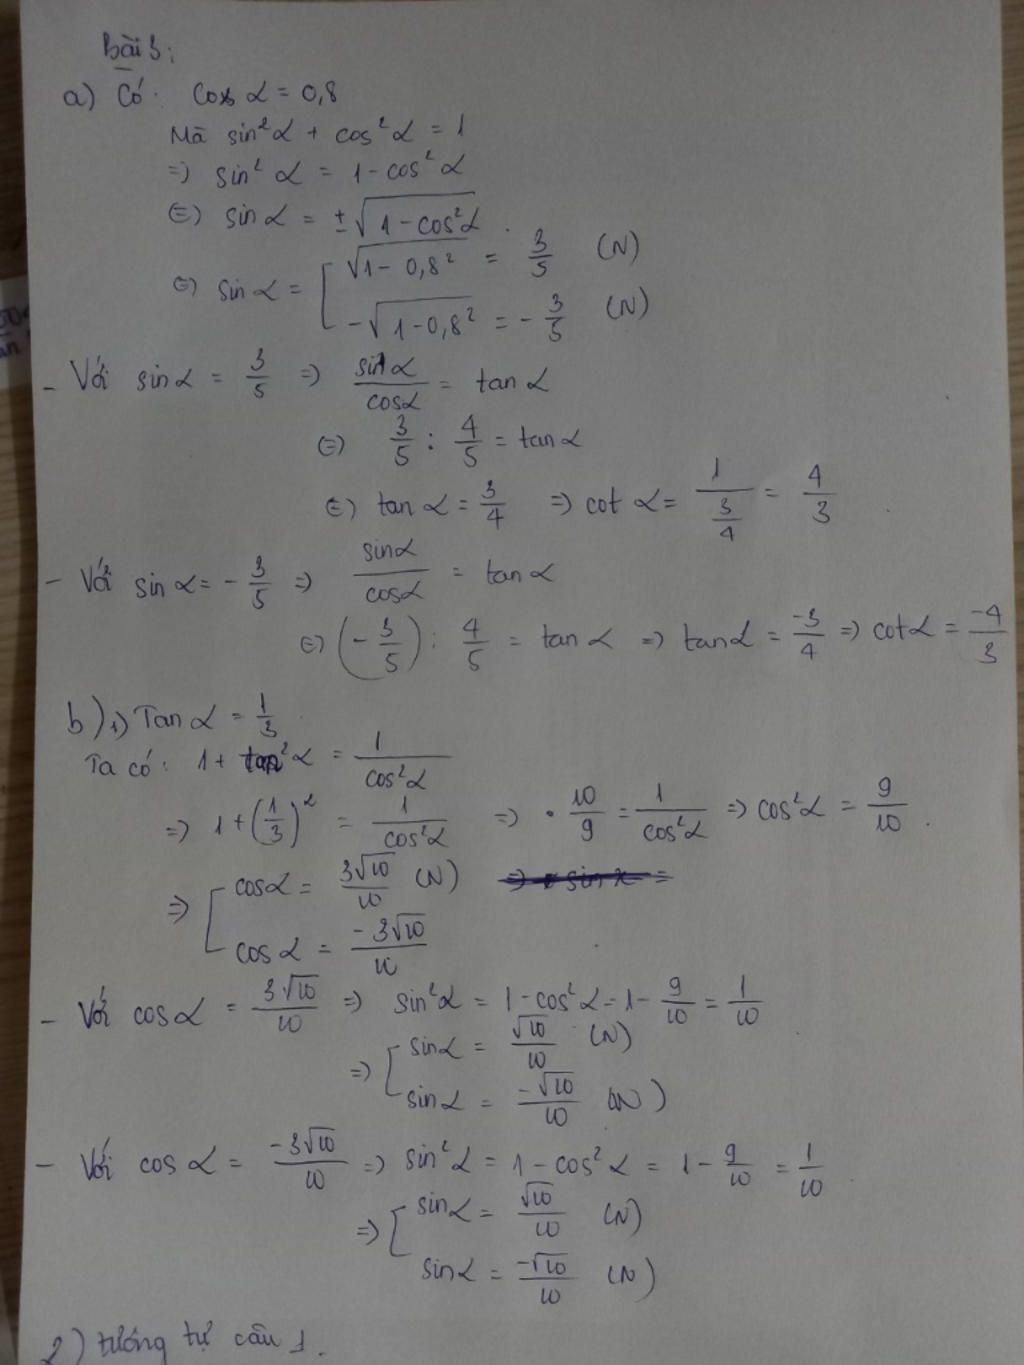 Bài 3:
a) Có: cos α = 0,8
Mà sin²α + cos²α = 1
=> sin²α = 1 - cos²α
<=> sin α = ±√(1 - cos²α).
<=> sin α = [ √(1 - 0,8²) = 3/5 (N)
-√(1 - 0,8²) = -3/5 (N)
- Với sin α = 3/5 => sin α / cos α = tan α
<=> 3/5 : 4/5 = tan α
<=> tan α = 3/4 => cot α = 1/(3/4) = 4/3
- Với sin α = -3/5 => sin α / cos α = tan α
<=> (-3/5) : 4/5 = tan α => tan α = -3/4 => cot α = -4/3
b) 1) Tan α = 1/3
Ta có: 1 + tan²α = 1/cos²α
=> 1 + (1/3)² = 1/cos²α => 10/9 = 1/cos²α => cos²α = 9/10.
=> [ cos α = 3√10/10 (N)
cos α = -3√10/10
- Với cos α = 3√10/10 => sin²α = 1 - cos²α = 1 - 9/10 = 1/10
=> [ sin α = √10/10 (N)
sin α = -√10/10 (N)
- Với cos α = -3√10/10 => sin²α = 1 - cos²α = 1 - 9/10 = 1/10
=> [ sin α = √10/10 (N)
sin α = -√10/10 (N)
2) tương tự câu 1.